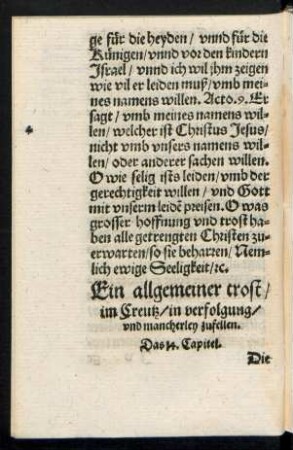 ge für die heyden/ vnnd für die
Künigen/ vnnd vor den kindern
Israel/ vnnd ich wil jhm zeigen
wie vil er leiden muß/ vmb mei-
nes namens willen. Acto.9. Er
sagt/ vmb meines namens wil-
len/ welcher ist Christus Jesus/
nicht vmb vnsers namens wil-
len/ oder anderer sachen willen.
O wie selig ists leiden/ vmb der
gerechtigkeit willen/ vnd Gott
mit vnserm leidē preisen. O was
grosser hoffnung vnd trost ha-
ben alle getrengten Christen zu-
erwarten/ so sie beharren/ Nem-
lich ewige Seeligkeit/ ꝛc.
Ein allgemeiner trost/
im Creutz/ in verfolgung/
vnd mancherley zufellen.
Das 14. Capitel.
Die